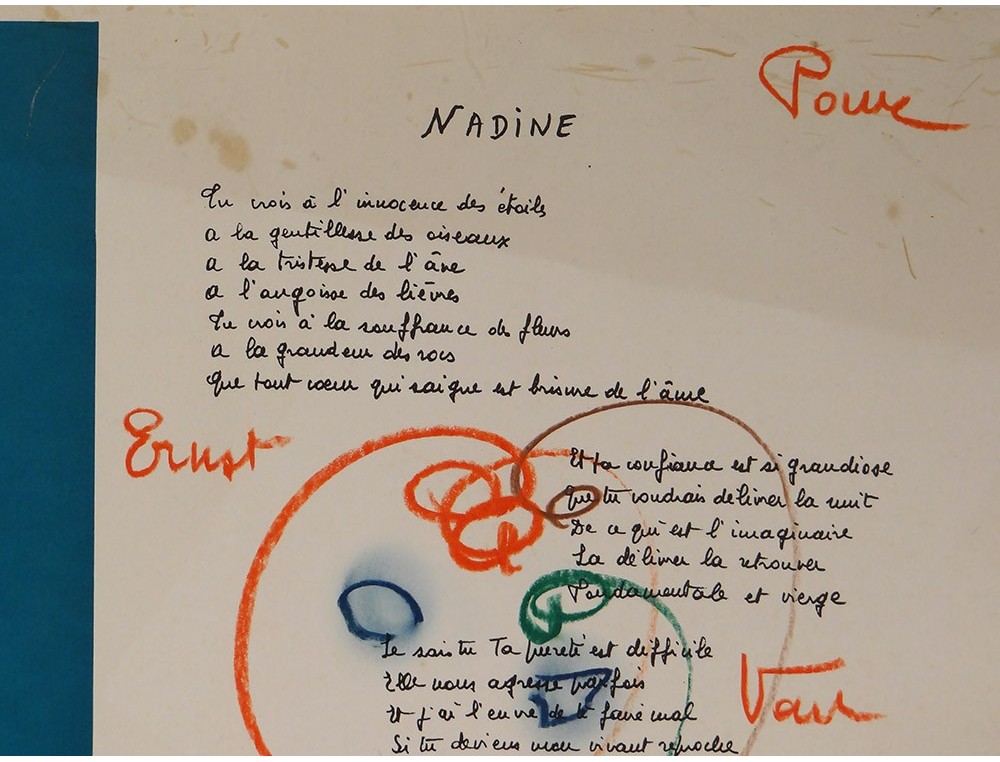 Pour
NADINE
Tu crois à l'innocence des étoiles
a la gentillesse des oiseaux
a la tristesse de l'âne
a l'angoisse des lièvres
Tu crois à la souffrance des fleurs
a la grandeur des rocs
Que tout coeur qui saigne est brisure de l'âme
Ernst
Et ta confiance est si grandiose
Que tu voudrais délivrer la nuit
De ce qui est l'imaginaire
La délivrer la retrouver
Fondamentale et vierge
Le sais tu Ta pureté est difficile
Elle nous agresse parfois
Et j'ai l'envie de te faire mal
Si tu deviens mon vivant reproche